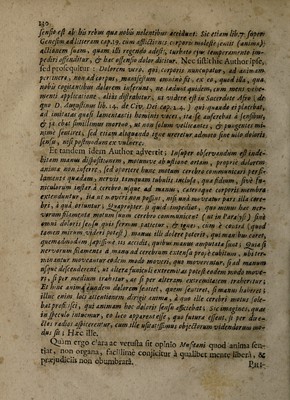 130
sensu est ab his rebus quæ nobis nolentibus accidunt. Sic etiam lib. 7. super
Genesim ad litteram cap. 19. cum afflictiones corporis molestè sentit (anima),
actionem suam, qua illi regendo adest, turbato ejus temperamento im-
pediri offenditur, & hæc offensio dolor dicitur. Nec sistit hic Author ipse,
sed prosequitur: Dolorem verò, qui corporis nuncupatur, ad animam
pertinere, non ad corpus, manifestum omnino fit, ex eo, quòd illa, quæ
nobis cogitantibus dolorem inferunt, ne lædunt quidem, cum mens vehe-
menti applicatione, aliò distenditur, ut videre est in Sacerdote illo (de
quo D. Augustinus lib. 14. de Civ. Dei cap. 24.) qui quando ei placebat,
ad imitatas quasi lamentantis hominis voces, ita se auferebat à sensibus,
& jacebat simillimus mortuo, ut non solum vellicantes, & pungentes mi-
nimè sentiret, sed etiam aliquando igne ureretur admoto sine ullo doloris
sensu, nisi postmodum ex vulnere.
Et tandem idem Author advertit; Insuper observandum est sude-
litatem manus dispositionem, motumve ab ustione ortam, propriè dolorem
anima non inferre, sed oportere hunc motum cerebro communicari per fi-
lamenta quædam, nervis tanquam tubulis inclusa, quæ siquidem, sive fu-
niculorum instar à cerebro usque ad manum, cæterasque corporis membra
extenduntur, ita ut moveri non possint, nisi unà moveatur pars illa cere-
bri, à qua oriuntur. Quapropter si quid impediat, quo minus hæc ner-
vorum filamenta motum suum cerebro communicent (ut in Paralysi) sine
omni doloris sensu quis ferrum patietur. Et quod, etsi è causis (quod
tamen mirum videri potest) manus illi dolere poterit, qui manibus caret,
quemadmodum sæpissimè iis accidit, quibus manus amputata sunt; Quia si
nervorum filamenta à manu ad cerebrum extensa propè cubitum, ubi ter-
minantur moveantur eodem modo moveri, quo moverentur, si ad manum
usque descenderent, ut altera funiculi extremitas potest eodem modo move-
ri, si per medium trahatur, ac si per alteram extremitatem traheretur:
Et hæc anima eundem dolorem sentiet, quem sentiret, si manum haberet:
illuc enim loci attentionem dirigit anima, à quo ille cerebri motus sole-
bat proficisci, qui animam hoc doloris sensu afficiebat; Sic imagines, quæ
in speculo intuemur, eo loco apparent esse, quo futura essent, si per dire-
ctos radios aspicerentur, cum ille usitatissimus objectorum videndorum mo-
dus sit; Hæc ille.
Quam ergo clara ac venusta sit opinio Nostrani quod anima sen-
tiat, non organa, facillimè conjicitur à qualibet mente liberâ, &
præjudiciis non obumbratâ.
Pati-